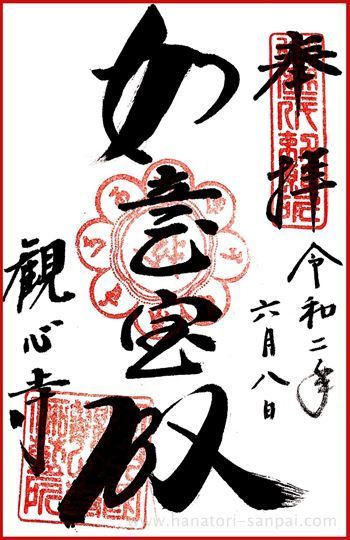 奉拝
令和二年
六月八日
如意宝殿
觀心寺
www.hanatori-sanpai.com